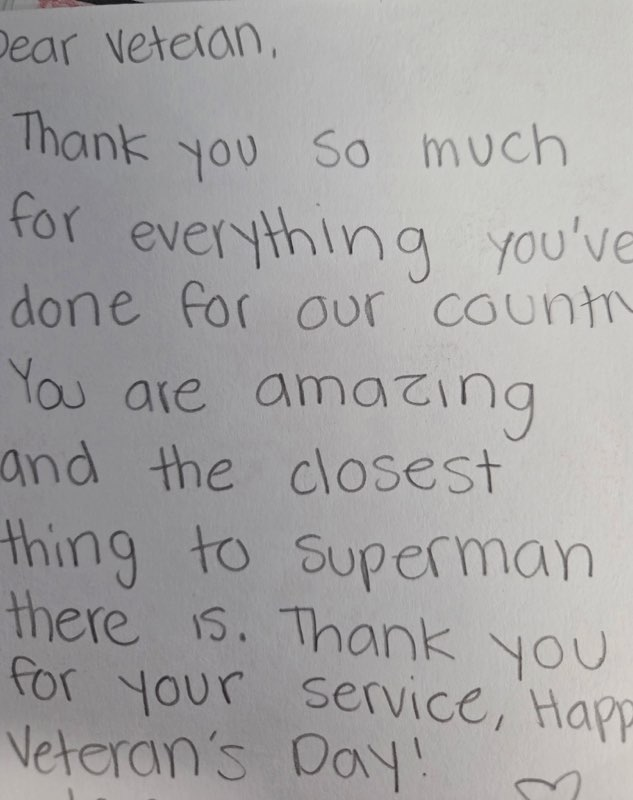 Dear Veteran,
Thank you so much
for everything you've
done for our countr
You are amazing
and the closest
thing to superman
there is. Thank you
for your service, Happ
Veteran's Day!